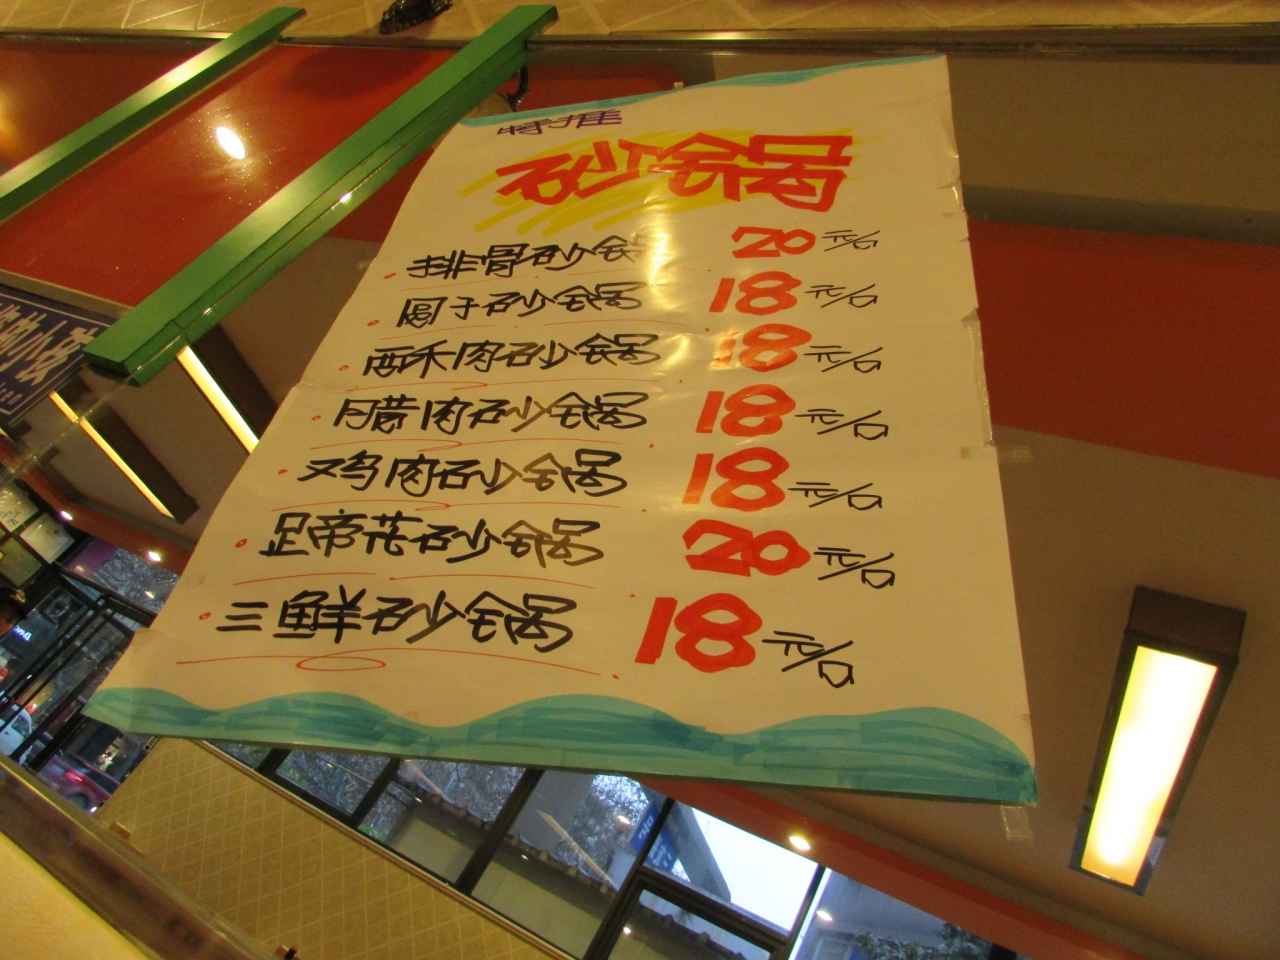 特推
砂锅
排骨砂锅 20元/份
圆子砂锅 18元/份
酥肉砂锅 18元/份
腊肉砂锅 18元/份
鸡肉砂锅 18元/份
足帝花砂锅 20元/份
三鲜砂锅 18元/份